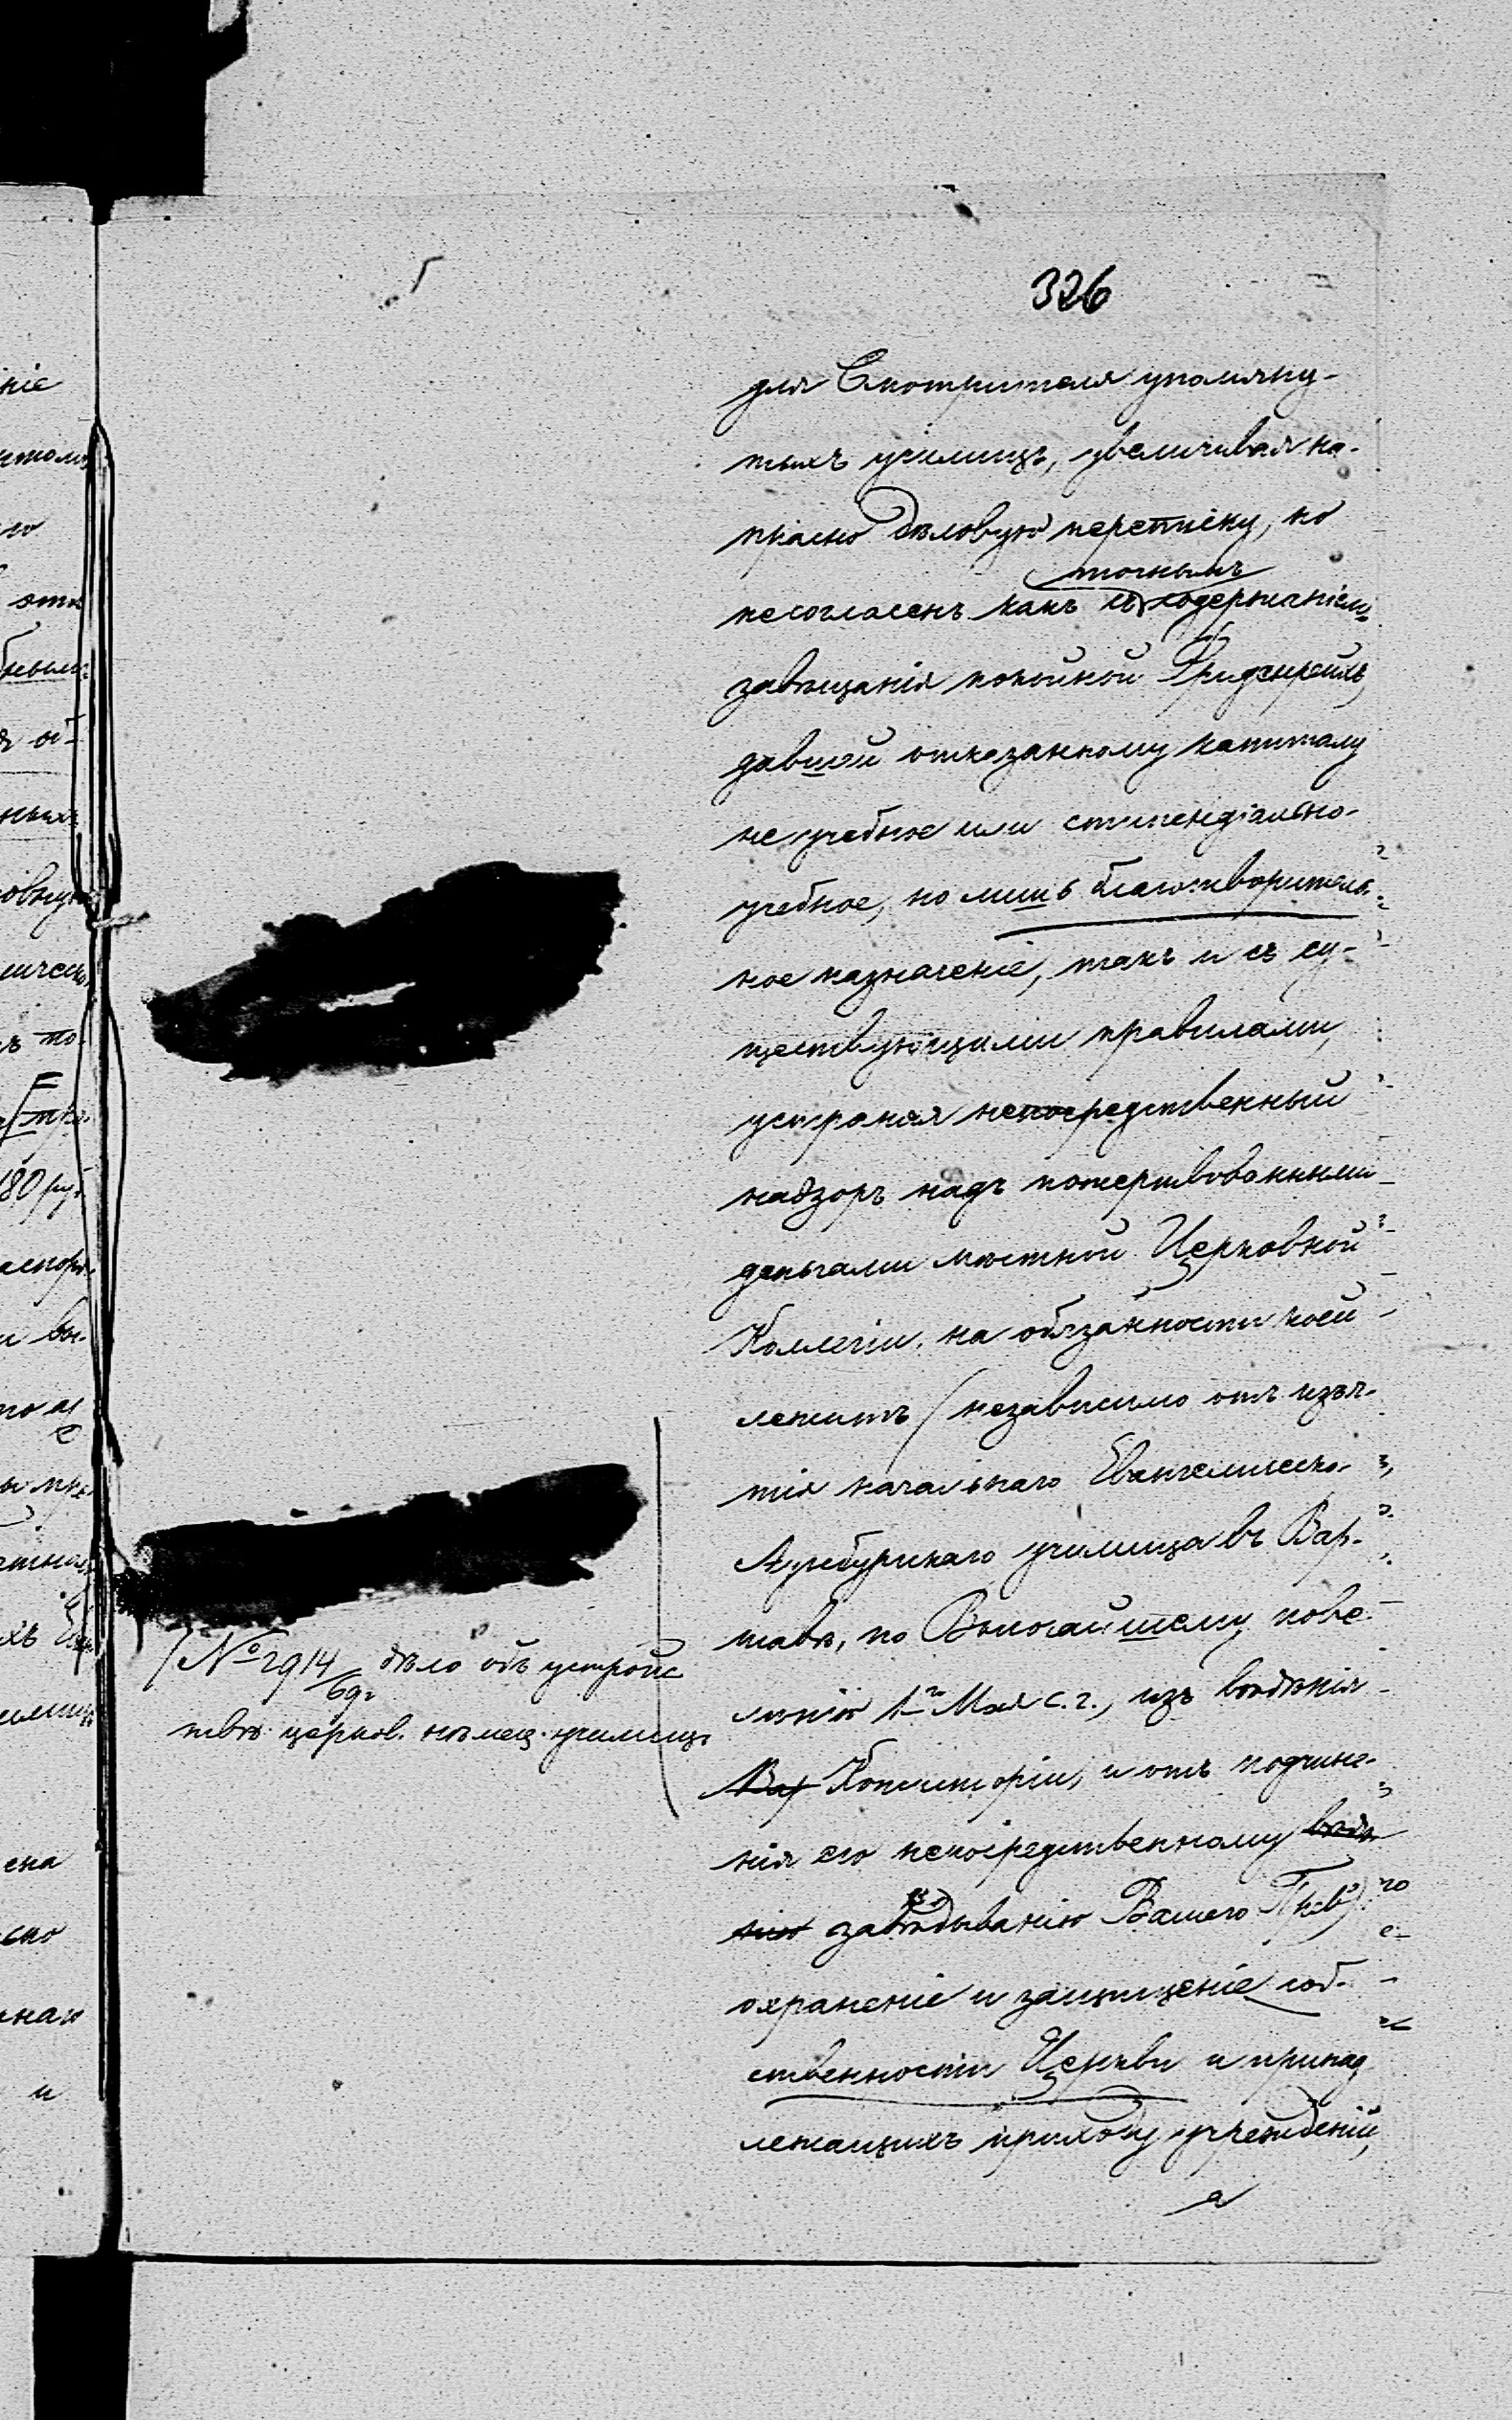 326
для Смотрителя упомяну-
тыхъ училищъ, увеличивая на-
прасно дѣловую переписку, но
точнымъ
несогласенъ какъ съ содержаніемъ
завѣщанія покойной
давшей отказанному капиталу
не учебное или стипендіально-
учебное, но лишь благотворитель-
ное назначеніе, такъ и съ су-
ществующими правилами,
устраняя непосредственный
надзоръ надъ пожертвованными
деньгами мѣстной Церковной
Коллегіи, на обязанности коей
лежитъ (независимо отъ изъя-
тія начальнаго Евангелическо-
Аугсбургскаго училища въ Вар-
шавѣ, по Высочайшему пове-
лѣнію 1го Мая с. г., изъ вѣдѣнія
Вар Консисторіи, и отъ подчине-
нія его непосредственному вѣдѣ
нію завѣдыванію Вашего Прев.)
охраненіе и защищеніе соб-
ственности Церкви и принад
лежащихъ приходу учрежденій,
а
№ 2914/69г. дѣло объ устройс
твѣ церков. нѣмец. училищъ